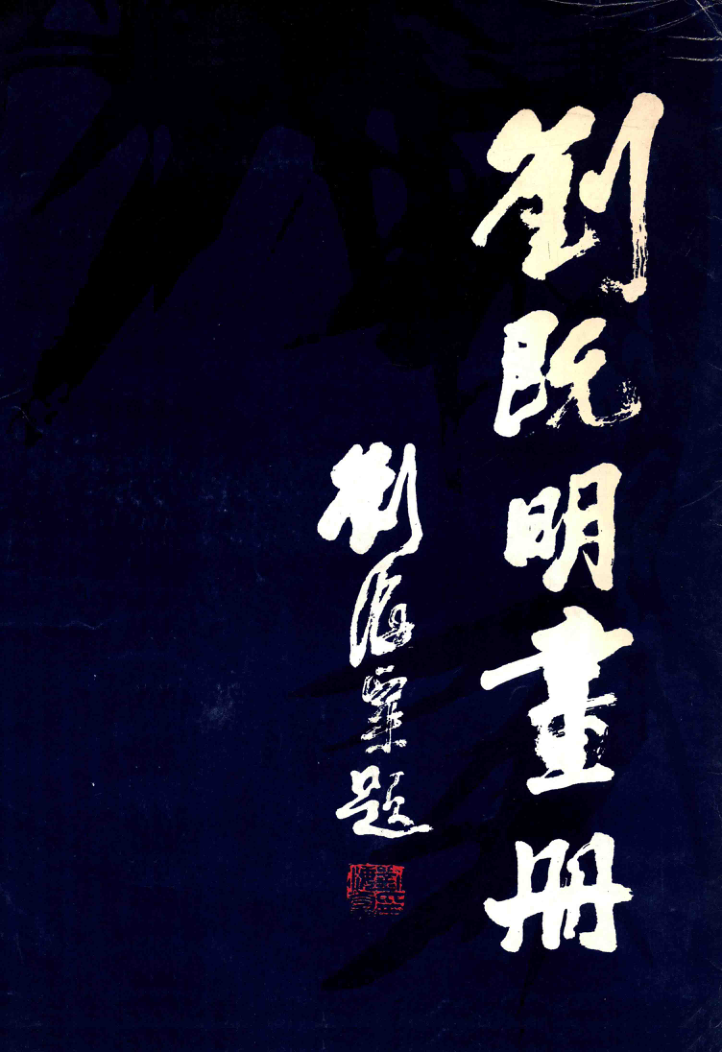 劉既明畫冊
劉海粟題